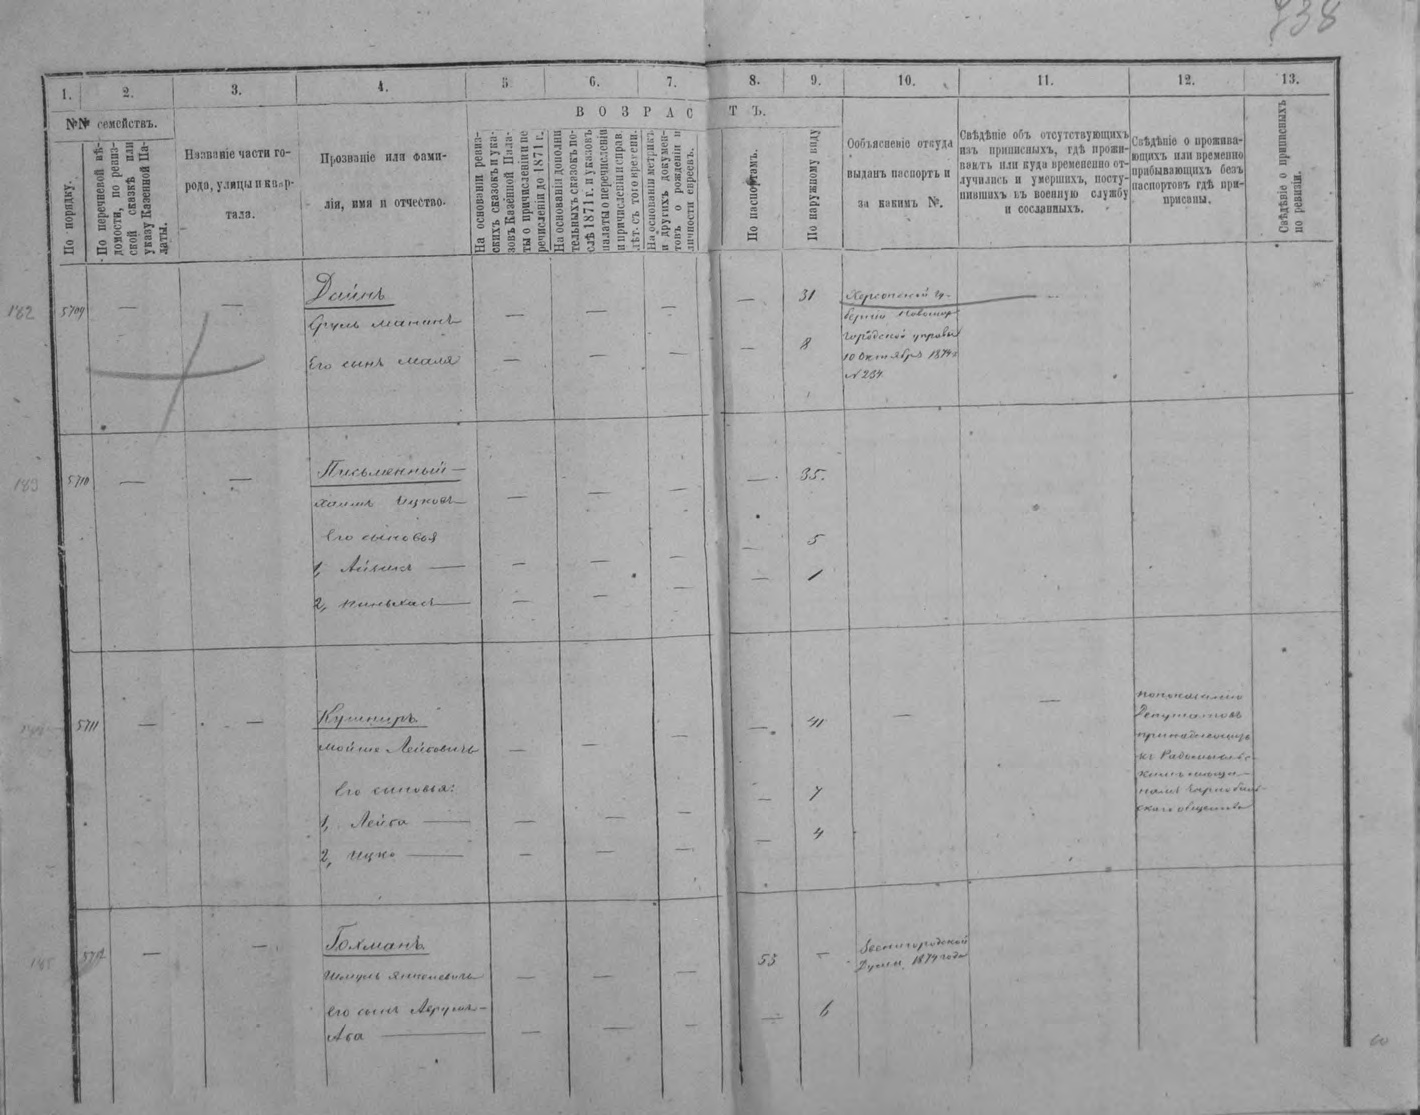 738
1.
2.
3.
4.
5
6.
7.
8.
9.
10.
11.
12.
13.
№№ семействъ.
ВОЗРАС
ТЪ.
По порядку.
По перечневой вѣ-
домости, по ревиз-
ской сказкѣ или
указу Казенной Па-
латы.
Названіе части го-
рода, улицы и квар-
тала.
Прозваніе или фами-
лія, имя и отчество.
На основаніи ревиз-
скихъ сказокъ и ука-
зовъ Казенной Пала-
ты о причисленіи и пе
речисленіи до 1871 г.
На основаніи дополни
тельныхъ сказокъ по-
слѣ 1871 г. и указовъ
палаты о перечисленіи
и причисленіи и справ.
лѣт. съ того времени.
На основаніи метрикъ
и другихъ докумен-
товъ о рожденіи и
личности евреевъ.
По паспортамъ.
По наружному виду
Объясненіе откуда
выданъ паспортъ и
за какимъ №.
Свѣдѣніе объ отсутствующихъ
изъ приписныхъ, гдѣ прожи-
ваютъ или куда временно от-
лучились и умершихъ, посту-
пившихъ въ военную службу
и сосланныхъ.
Свѣдѣніе о прожива-
ющихъ или временно
прибывающихъ безъ
паспортовъ гдѣ при-
писаны.
Свѣдѣніе о приписныхъ
по ревизіи.
182
5709
Дайнъ
Сруль Манинъ
31
Его сынъ Маля
8
Херсонской гу-
берніи Новомир-
городской управы
10 Октября 1874 г
№ 234.
183
5710
Письменный
Хаимъ Ицковъ
35.
Его сыновья
1, Айзикъ
5
2, Пиньхасъ
1
5711
Кушниръ
Мойше Лейбовичъ
41
Его сыновья:
1, Лейба
7
2, Ицко
4
по показанію
Депутатовъ
принадлежитъ
къ Радомысльс-
кимъ мѣща-
намъ Чарнобыль-
скаго общества
185
5712
Гохманъ
Шмуль Янкелевичъ
53
Его сынъ Аврумъ-
Аба
6
Звенигородской
Думы 1874 года